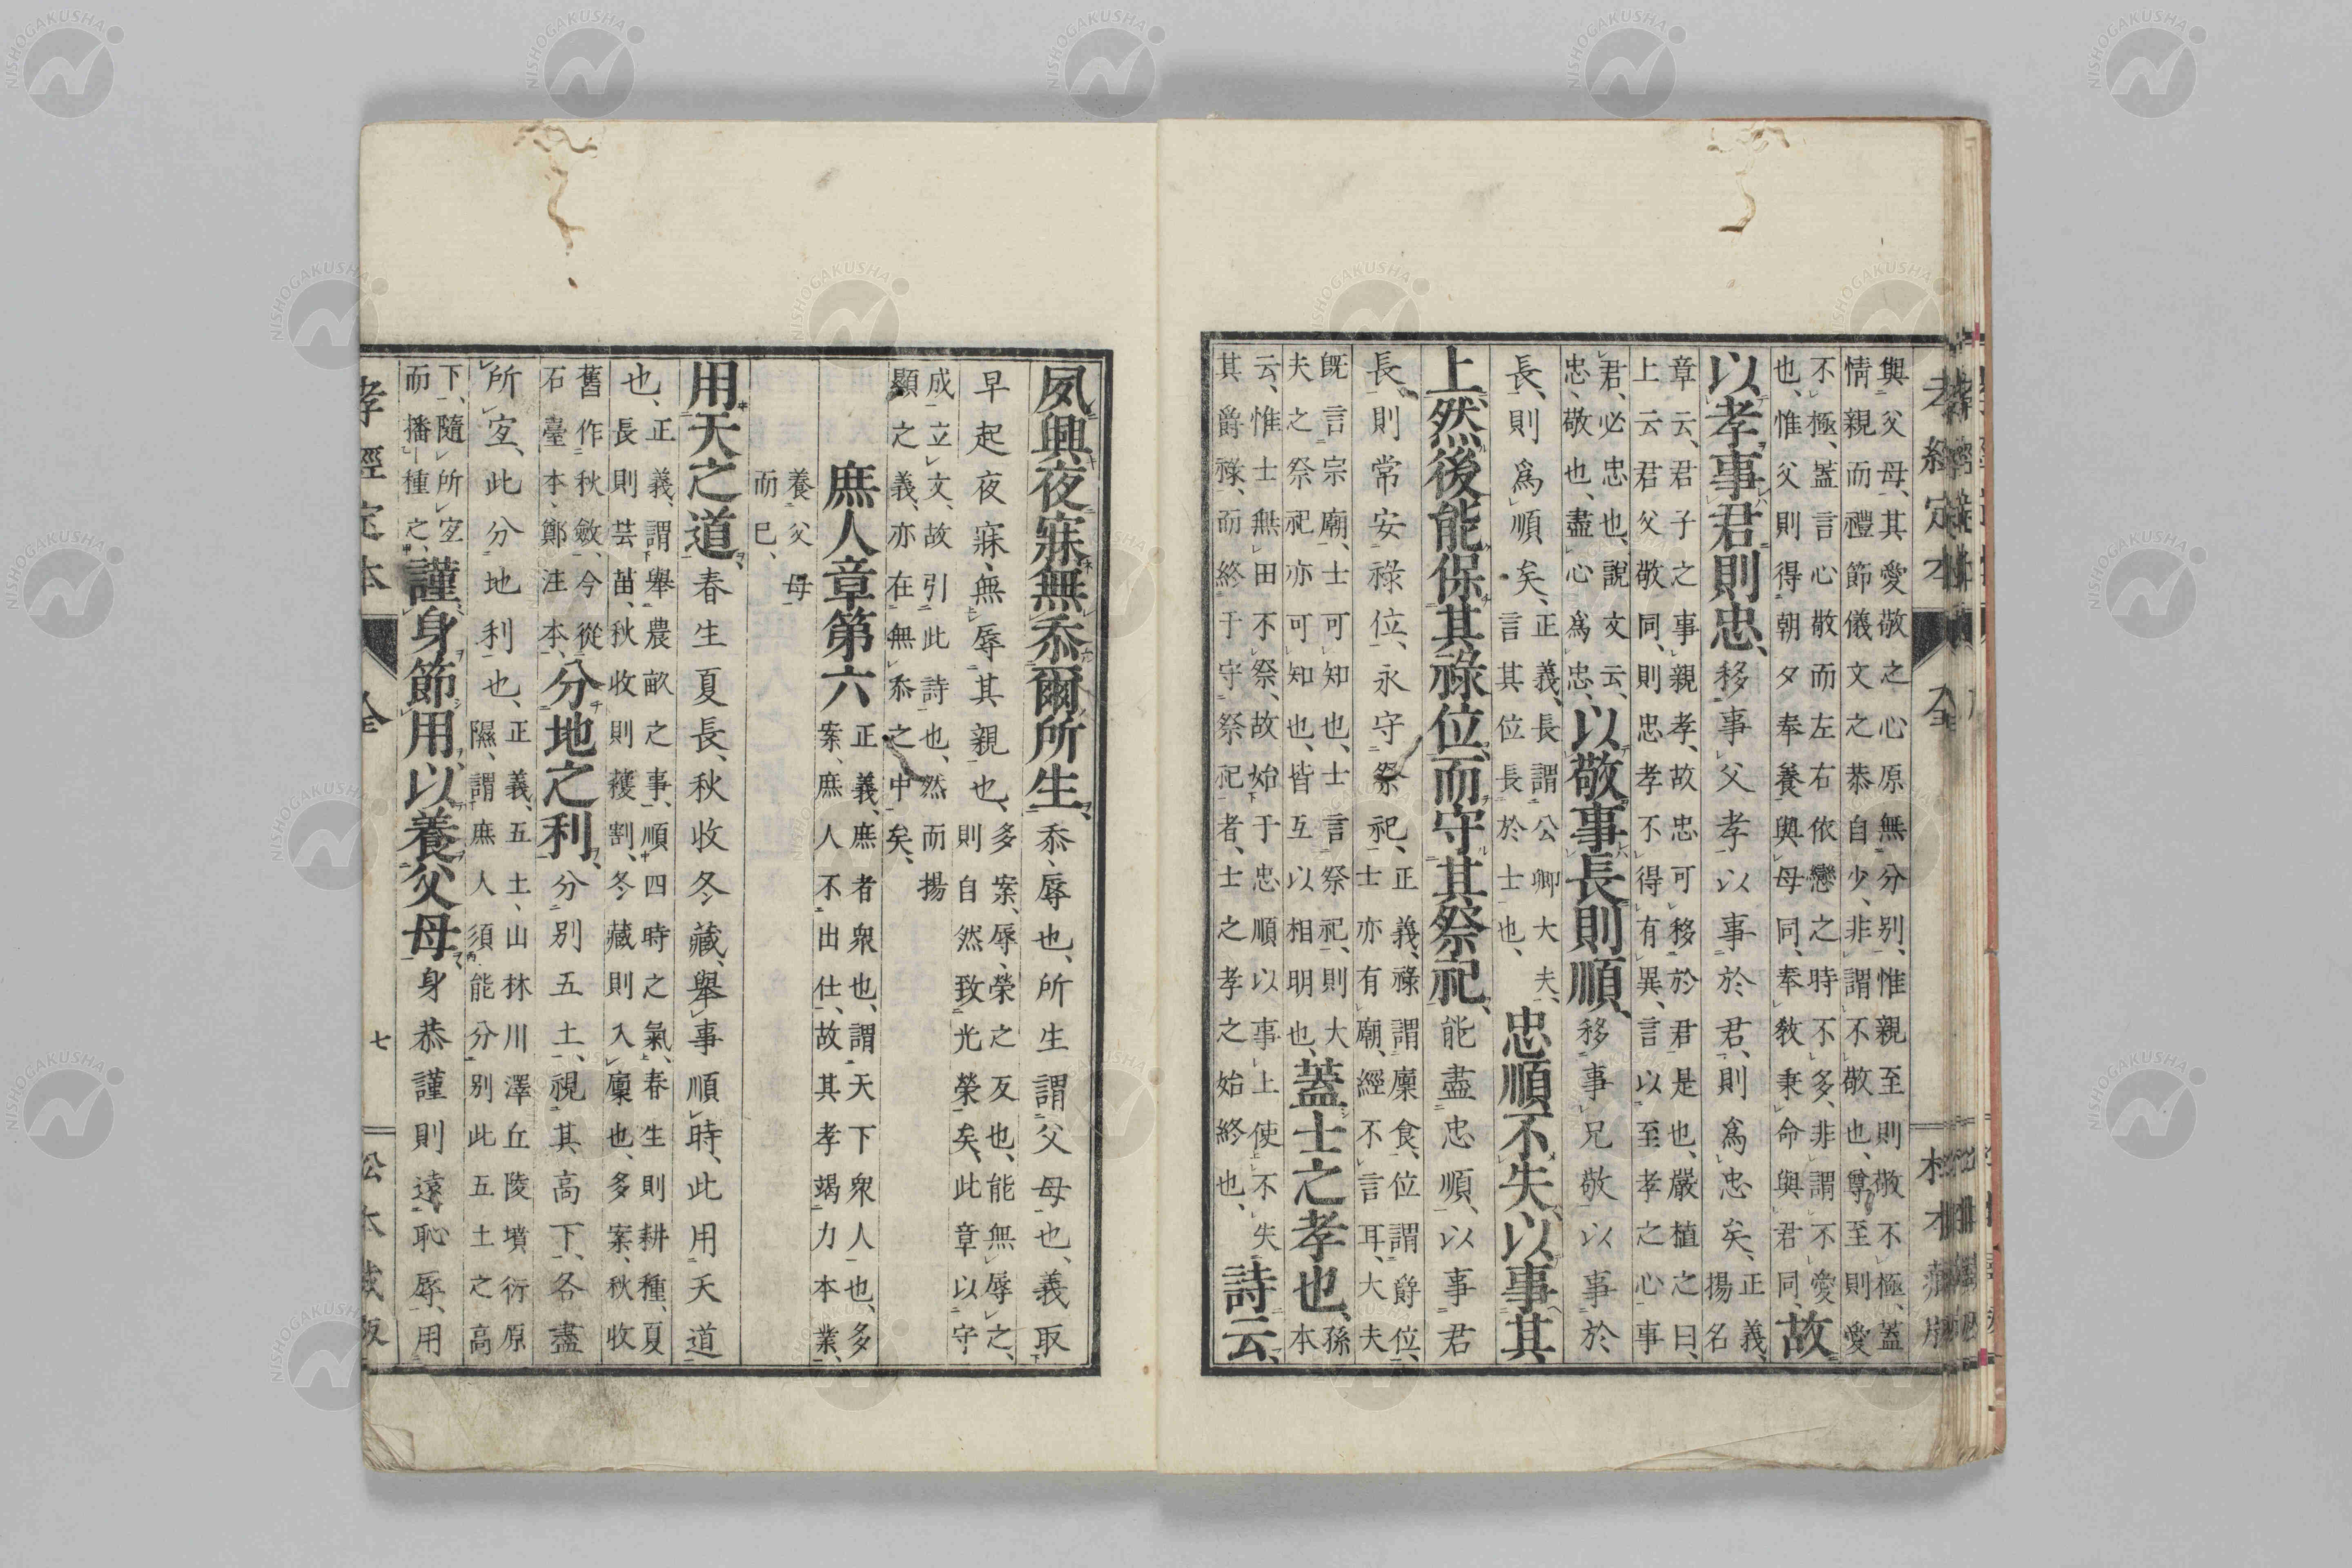 與父母、其愛敬之心原無分别、惟親至則敬不極、蓋
情親而禮節儀文之恭自少、非謂不敬也、尊至則愛
不極、蓋言心敬而左右依戀之時不多、非謂不愛
也、惟父則得朝夕奉養與母同、奉教秉命與君同、故
以孝事君則忠、移事父孝以事於君、則爲忠矣、正義、
揚名
章云、君子之事親孝、故忠可移於君是也、嚴植之曰、
上云君父敬同、則忠孝不得有異、言以至孝之心事
君、必忠也、說文云、
忠、敬也、盡心爲忠、以敬事長則順、移事兄敬以事於
長、則爲順矣、正義、長謂公卿大夫、
言其位長於士也、忠順不失、以事其
上、然後能保其祿位、而守其祭祀、能盡忠順、以事君
長、則常安祿位、永守祭祀、正義、祿謂廩食、位謂爵位、
士亦有廟、經不言耳、大夫
既言宗廟、士可知也、士言祭祀、則大
夫之祭祀亦可知也、皆互以相明也、蓋士之孝也、孫
本
云、惟士無田不祭、故始于忠順以事上、使不失
其爵祿、而終于守祭祀者、士之孝之始終也、詩云、
夙興夜寐、無忝爾所生、忝、辱也、所生謂父母也、義取
早起夜寐、無辱其親也、多案、辱、榮之反也、能無辱之、
則自然致光榮矣、此章以守
成立文、故引此詩也、然而揚
顯之義、亦在無忝之中矣、
庶人章第六 正義、庶者衆也、謂天下衆人也、多
案、庶人不出仕、故其孝竭力本業、
養父母
而已、
用天之道、春生夏長、秋收冬藏、舉事順時、此用天道
也、正義、謂舉農畝之事、順四時之氣、春生則耕種、夏
長則芸苗、秋收則穫割、冬藏則入廩也、多案、秋收
舊作秋斂、今從
石臺本、鄭注本、分地之利、分别五土、視其高下、各盡
所宜、此分地利也、正義、五土、山林川澤丘陵墳衍原
隰、謂庶人須能分别此五土之高
下、隨所宜
而播種之、謹身節用、以養父母、身恭謹則遠恥辱、用
孝經定本
全
七